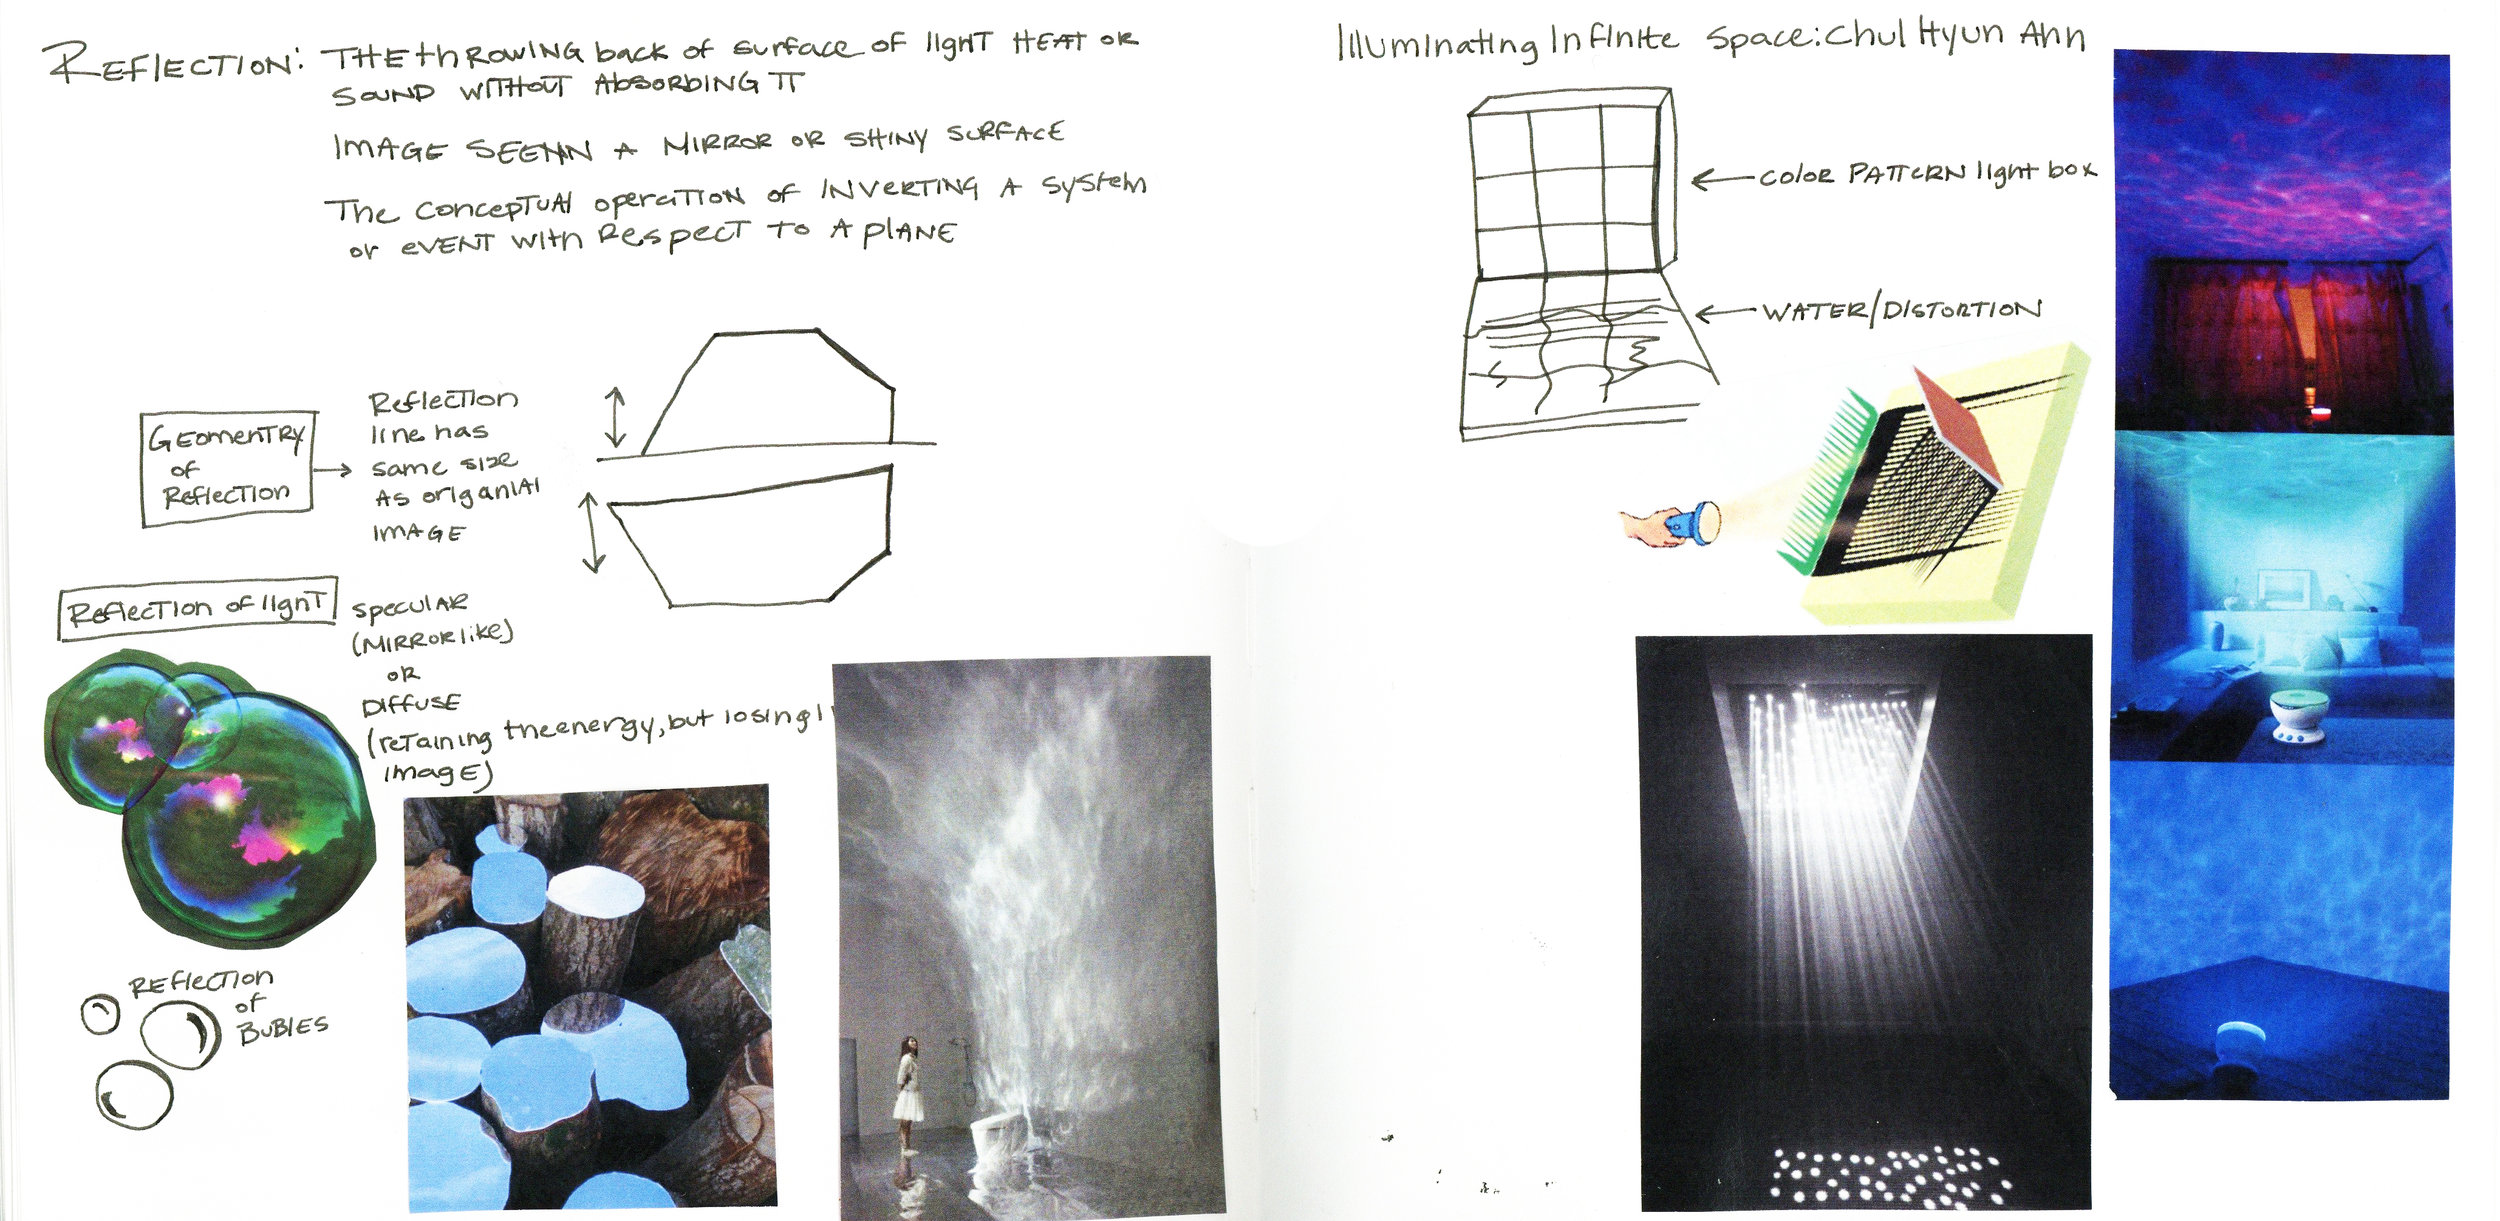 REFLECTION: THE throwING back of surface of light HEAT OR
SOUND WITHOUT ABSORBING IT
IMAGE SEENN A MIRROR OR SHINY SURFACE
The conceptual operation of INVERTING A system
or EVENT with Respect to A PLANE
GEOMENTRY
of
Reflection
Reflection
line has
same size
As origanial
IMAGE
Reflection of light
specular
(MIRRORlike)
OR
DIFFUSE
(retaining the energy, but losing
image)
REflection
of
BUBlES
Illuminating Infinite Space: Chul Hyun Ahn
color PATTERN light box
WATER/DISTORTION